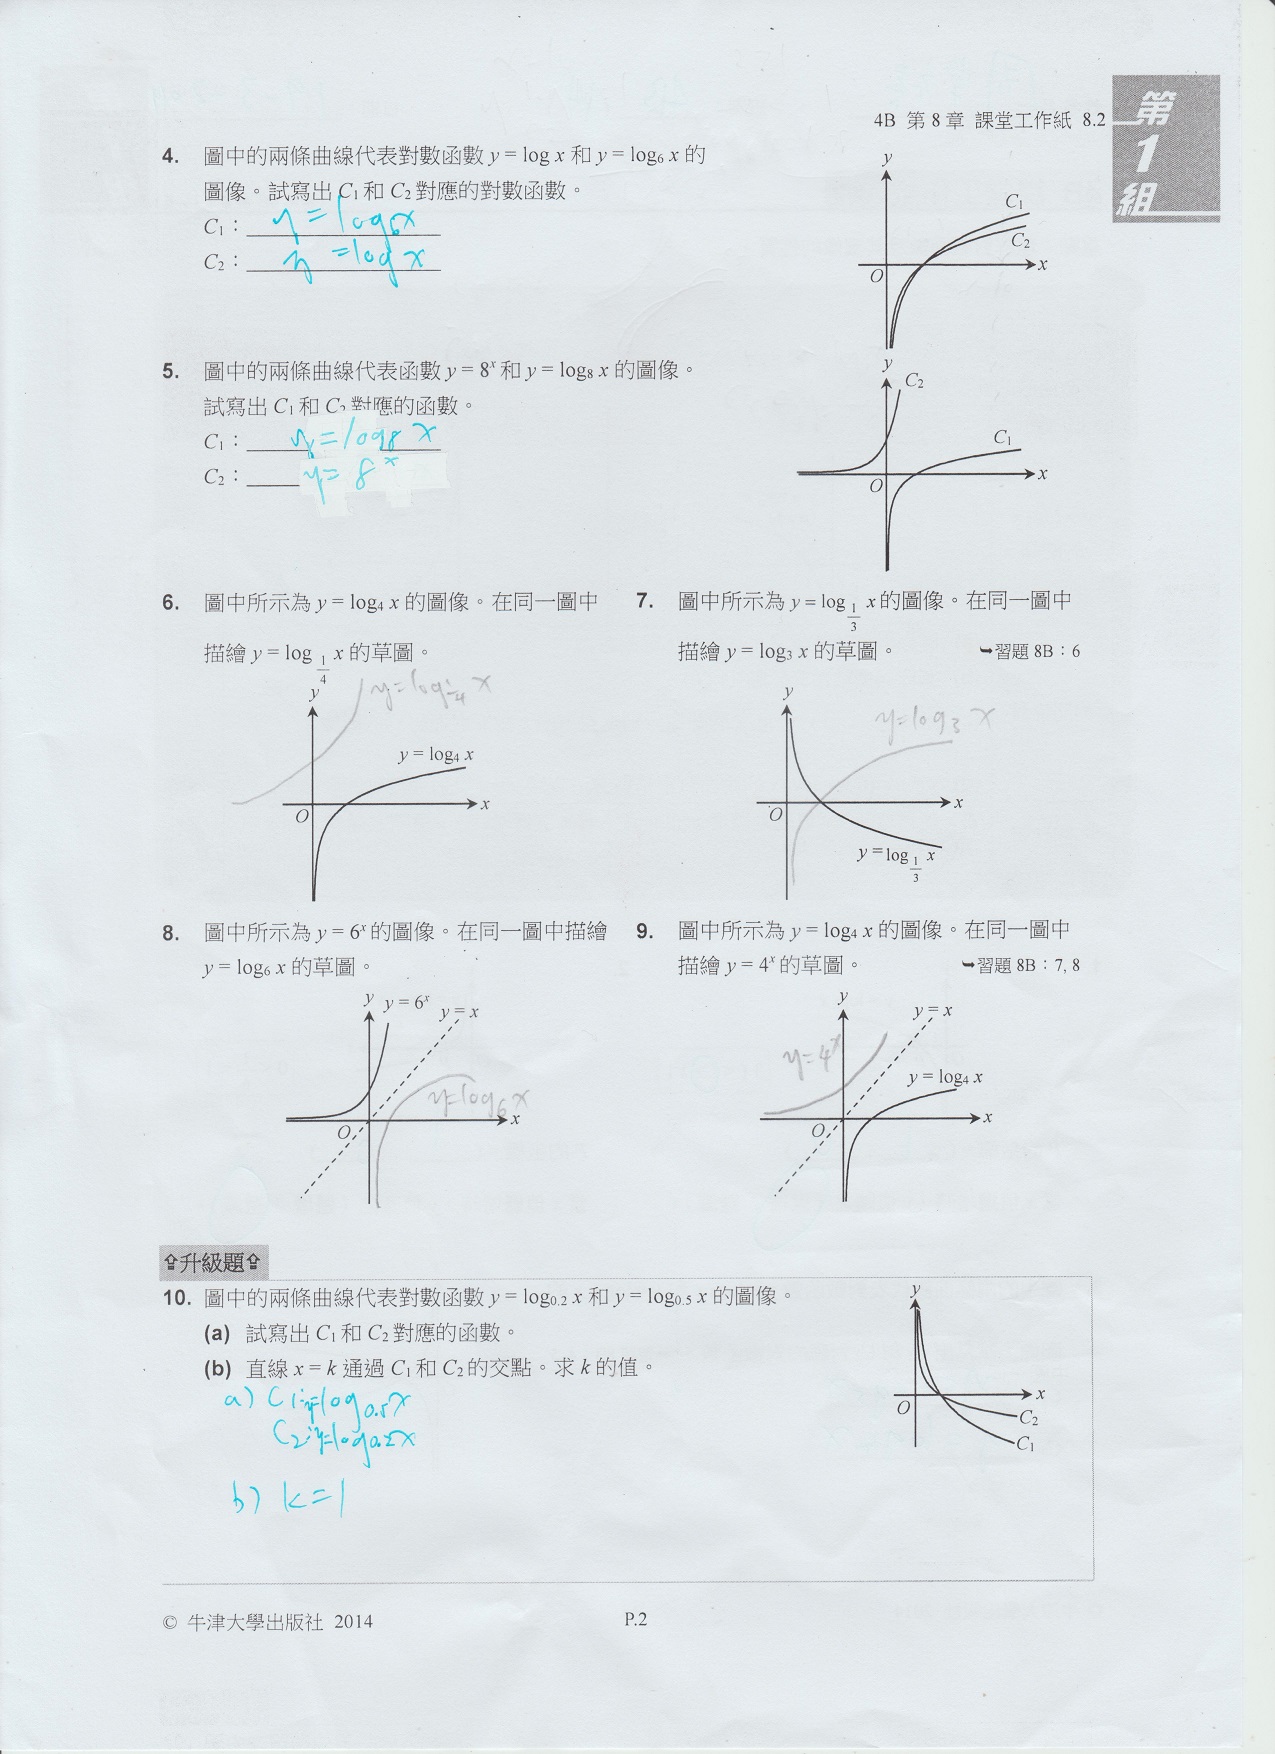 4B 第 8 章 課堂工作紙 8.2
第1組
4. 圖中的兩條曲線代表對數函數 y = log x 和 y = log₆ x 的
圖像。試寫出 C₁ 和 C₂ 對應的對數函數。
C₁：y = log₆x
C₂：y = log x
y
C₁
C₂
O
x
5. 圖中的兩條曲線代表函數 y = 8ˣ 和 y = log₈ x 的圖像。
試寫出 C₁ 和 C₂ 對應的函數。
C₁：y = log8 x
C₂：y = 8ˣ
y
C₂
C₁
O
x
6. 圖中所示為 y = log₄ x 的圖像。在同一圖中
描繪 y = log_{1/4} x 的草圖。
y
y=log_{1/4} x
y = log₄ x
O
x
7. 圖中所示為 y = log_{1/3} x 的圖像。在同一圖中
描繪 y = log₃ x 的草圖。 ➥習題 8B：6
y
y=log₃ x
O
x
y = log_{1/3} x
8. 圖中所示為 y = 6ˣ 的圖像。在同一圖中描繪
y = log₆ x 的草圖。
y
y = 6ˣ
y = x
y=log₆x
O
x
9. 圖中所示為 y = log₄ x 的圖像。在同一圖中
描繪 y = 4ˣ 的草圖。 ➥習題 8B：7, 8
y
y = x
y=4ˣ
y = log₄ x
O
x
⇧升級題⇧
10. 圖中的兩條曲線代表對數函數 y = log₀.₂ x 和 y = log₀.₅ x 的圖像。
(a) 試寫出 C₁ 和 C₂ 對應的函數。
(b) 直線 x = k 通過 C₁ 和 C₂ 的交點。求 k 的值。
a) C1:y=log₀.₅x
C₂:y=log₀.₂x
b) k=1
y
O
x
C₂
C₁
© 牛津大學出版社 2014
P.2